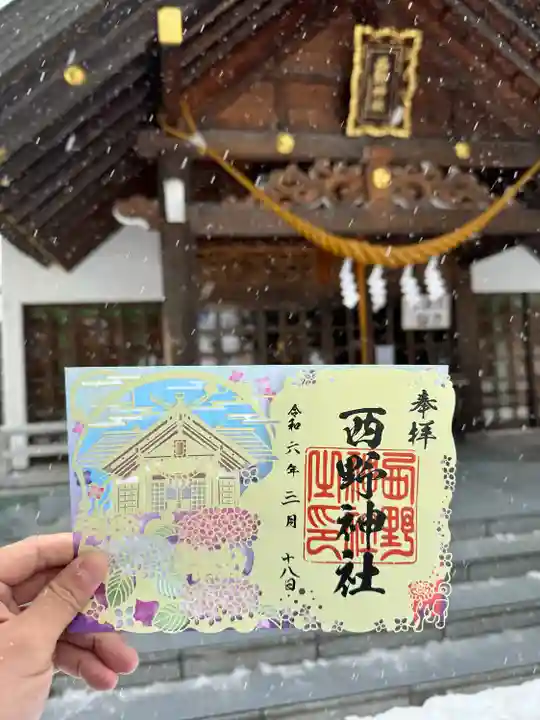 奉拝
西野神社
西野神社之印
令和六年三月十八日